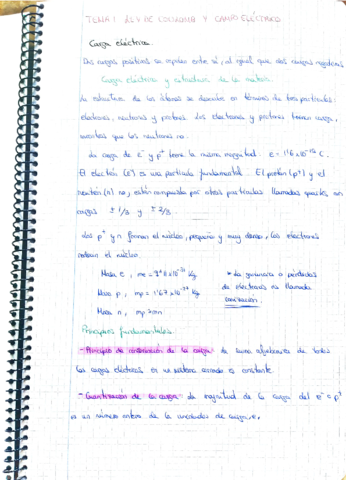 TEMA 1 LEY DE COULOMB Y CAMPO ELÉCTRICO
Carga eléctrica.
Dos cargas positivas se repelen entre sí, al igual que dos cargas negativas
Carga eléctrica y estructura de la materia.
La estructura de los átomos se describe en términos de tres partículas:
electrones, neutrones y protones. Los electrones y protones tienen carga,
mientras que los neutrones no.
La carga de e⁻ y p⁺ tiene la misma magnitud. e = 1'6 x 10⁻¹⁹ C.
El electrón (e⁻) es una partícula fundamental. El protón (p⁺) y el
neutrón (n) no, están compuestos por otras partículas llamadas quarks, con
cargas ± 1/3 y ± 2/3.
Los p⁺ y n forman el núcleo, pequeño y muy denso, los electrones
rodean el núcleo.
Masa e, me = 9'1 x 10⁻³¹ Kg
Masa p, mp = 1'67 x 10⁻²⁷ Kg
Masa n, mp ≈ mn
* La ganancia o pérdida
de electrones es llamada
ionización.
Principios fundamentales.
- Principio de conservación de la carga: la suma algebraica de todas
las cargas eléctricas en un sistema cerrado es constante.
- Cuantización de la carga: la magnitud de la carga del e⁻ o p⁺
es un número entero de la unidad de carga, e.